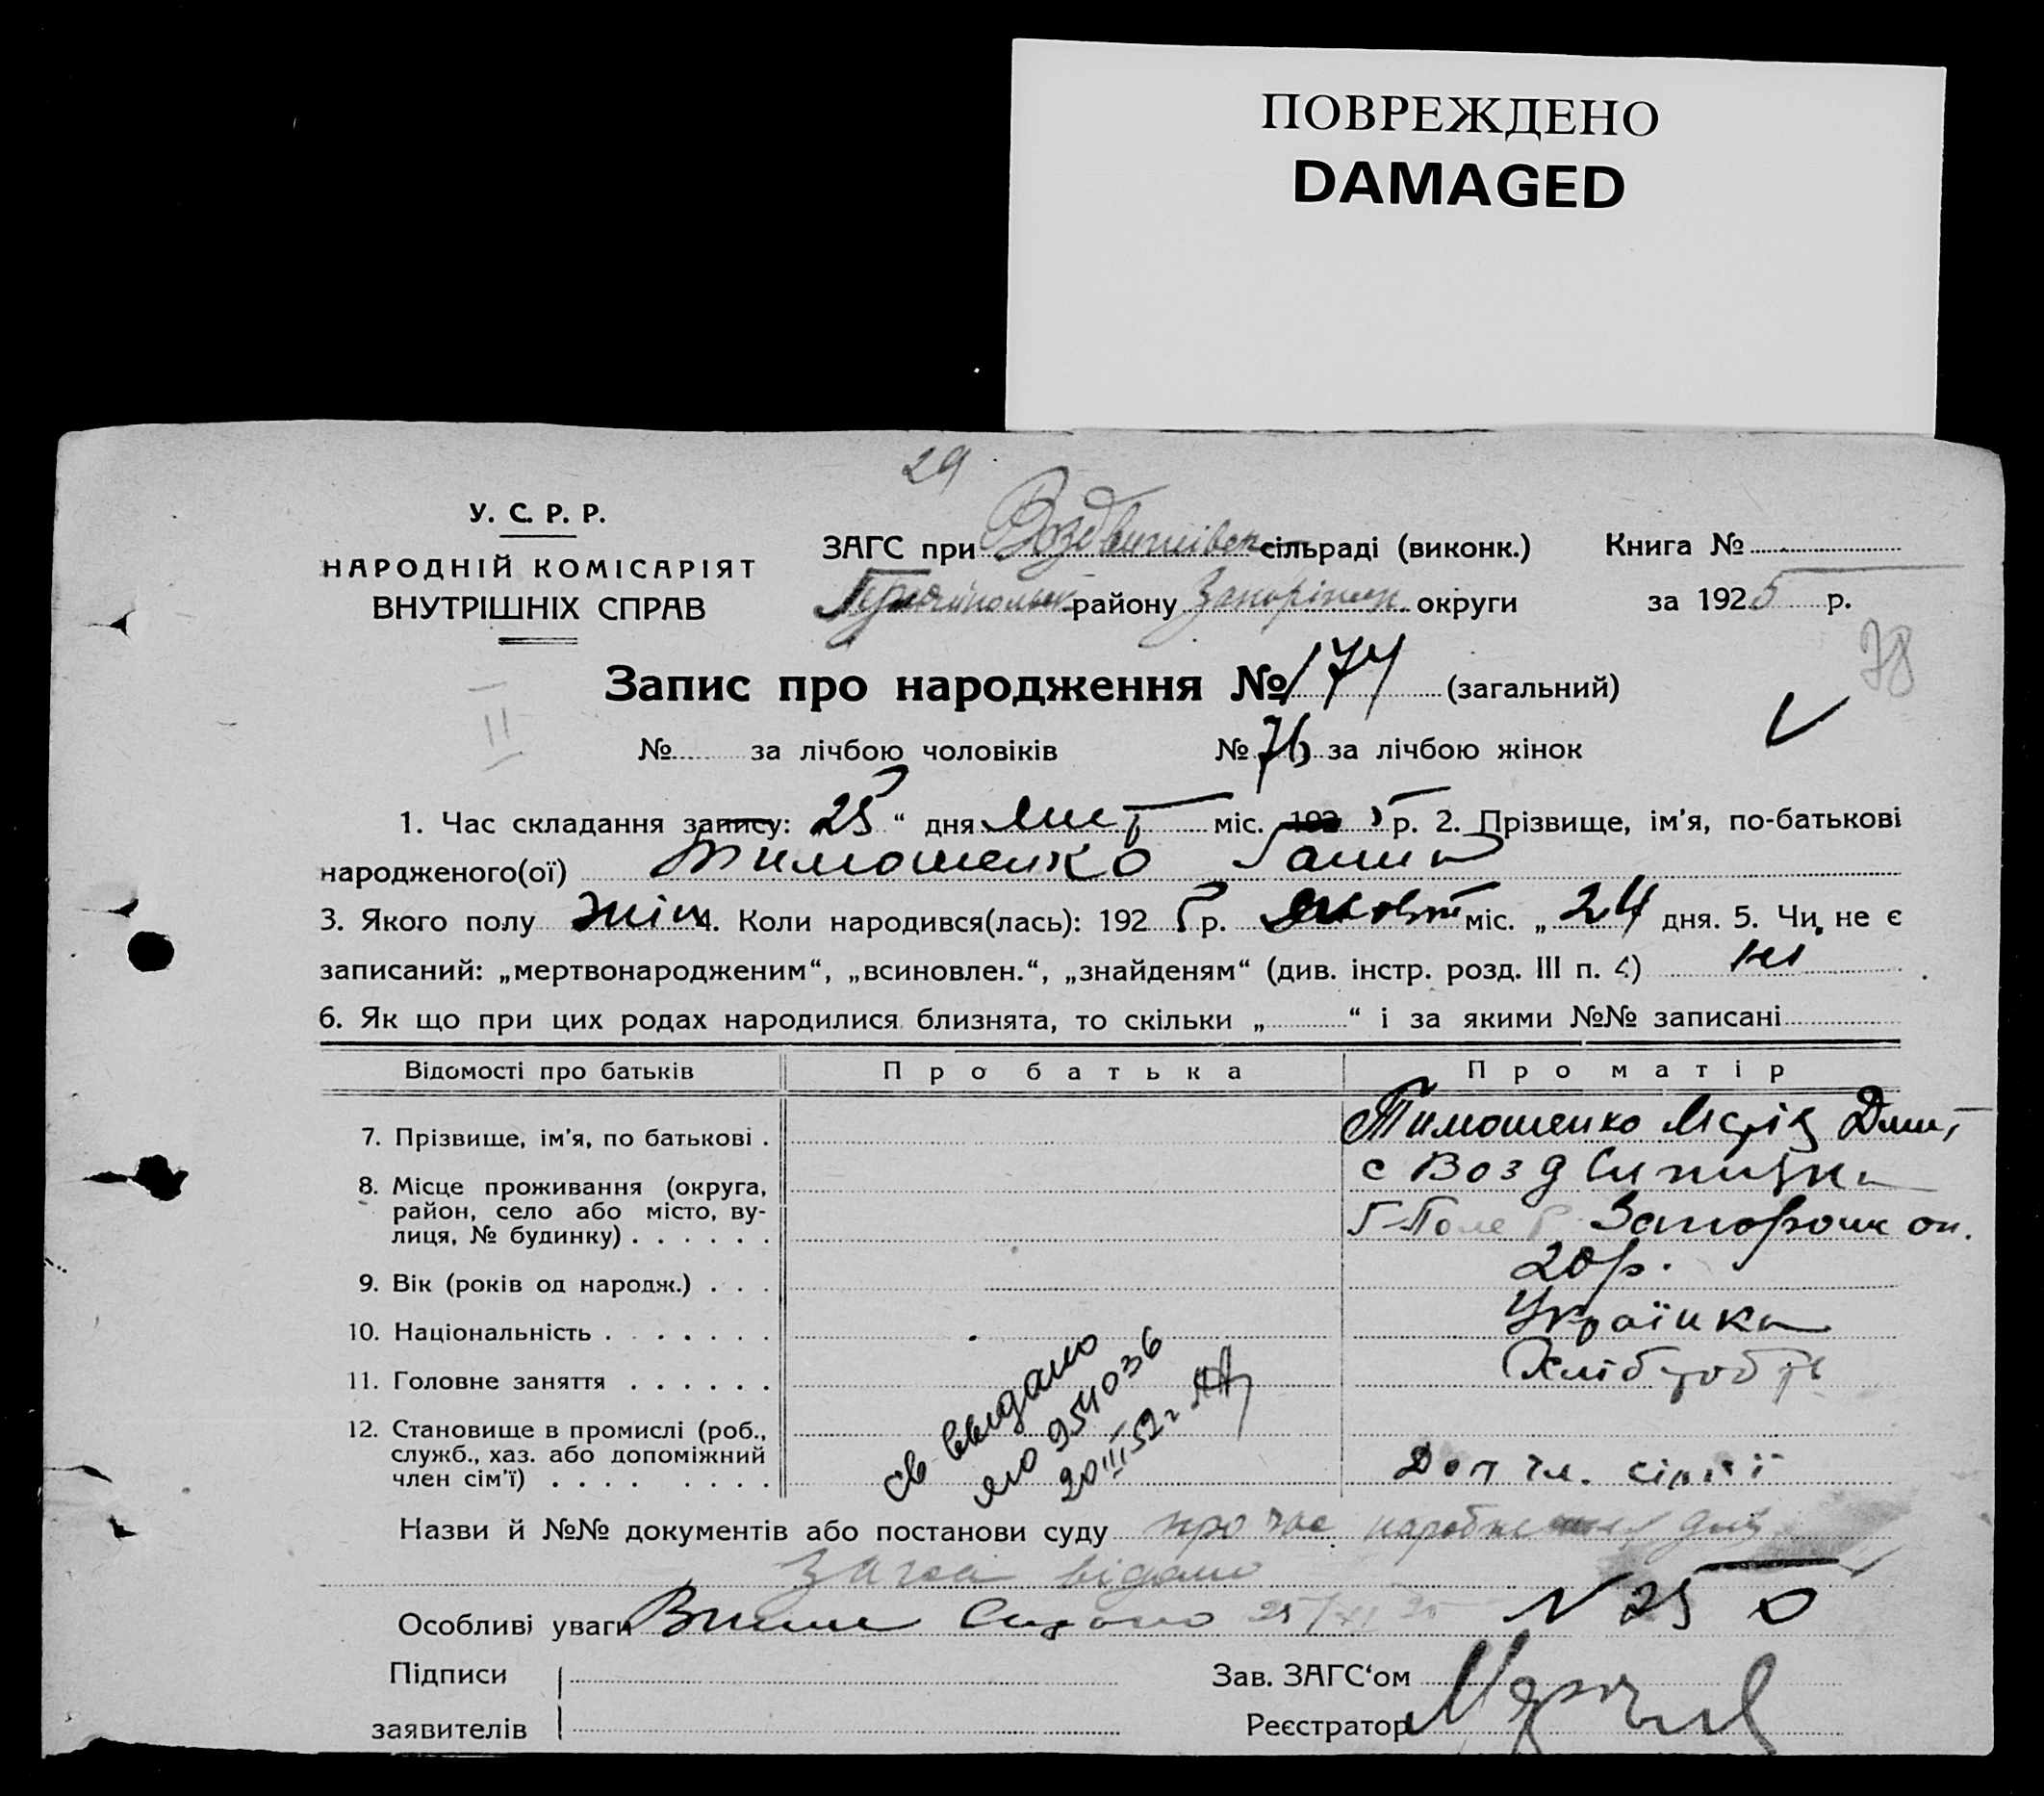 ПОВРЕЖДЕНО
DAMAGED
29
У. С. Р. Р.
НАРОДНІЙ КОМІСАРІЯТ
ВНУТРІШНІХ СПРАВ
ЗАГС при Воздвижівськ сільраді (виконк.)
Книга №
району Запоріжськ округи
за 1925 р.
78
Запис про народження № 174 (загальний)
II
№ за лічбою чоловіків
№ 76 за лічбою жінок
1. Час складання запису: 25 “ дня лист міс. 192 5 р. 2. Прізвище, ім’я, по-батькові
народженого(ої) Тимошенко Ганна
3. Якого полу жін 4. Коли народився(лась): 192 5 р. жовт міс. „ 24 дня. 5. Чи не є
записаний: „мертвонародженим“, „всиновлен.“, „знайденям“ (див. інстр. розд. III п. ) ні
6. Як що при цих родах народилися близнята, то скільки „ “ і за якими №№ записані
Відомості про батьків
Про батька
Про матір
7. Прізвище, ім’я, по батькові .
Тимошенко Марія Дмит
8. Місце проживання (округа,
район, село або місто, ву-
лиця, № будинку) . . . . . .
с Воздвижівка
Г-Поле Р Запорожж ок.
9. Вік (років од народж.) . . .
20 р.
10. Національність . . . . . . .
Українка
11. Головне заняття . . . . . .
Хлібороб
12. Становище в промислі (роб.,
служб., хаз. або допоміжний
член сім’ї) . . . . . . . .
Доп чл. сімї
св выдано
954036
20 III 52 г
Назви й №№ документів або постанови суду про час народження для
Загса відомо
Особливі уваги Видано 25/XI 25 N 25
Підписи
заявителів
Зав. ЗАГС‘ом
Реєстратор